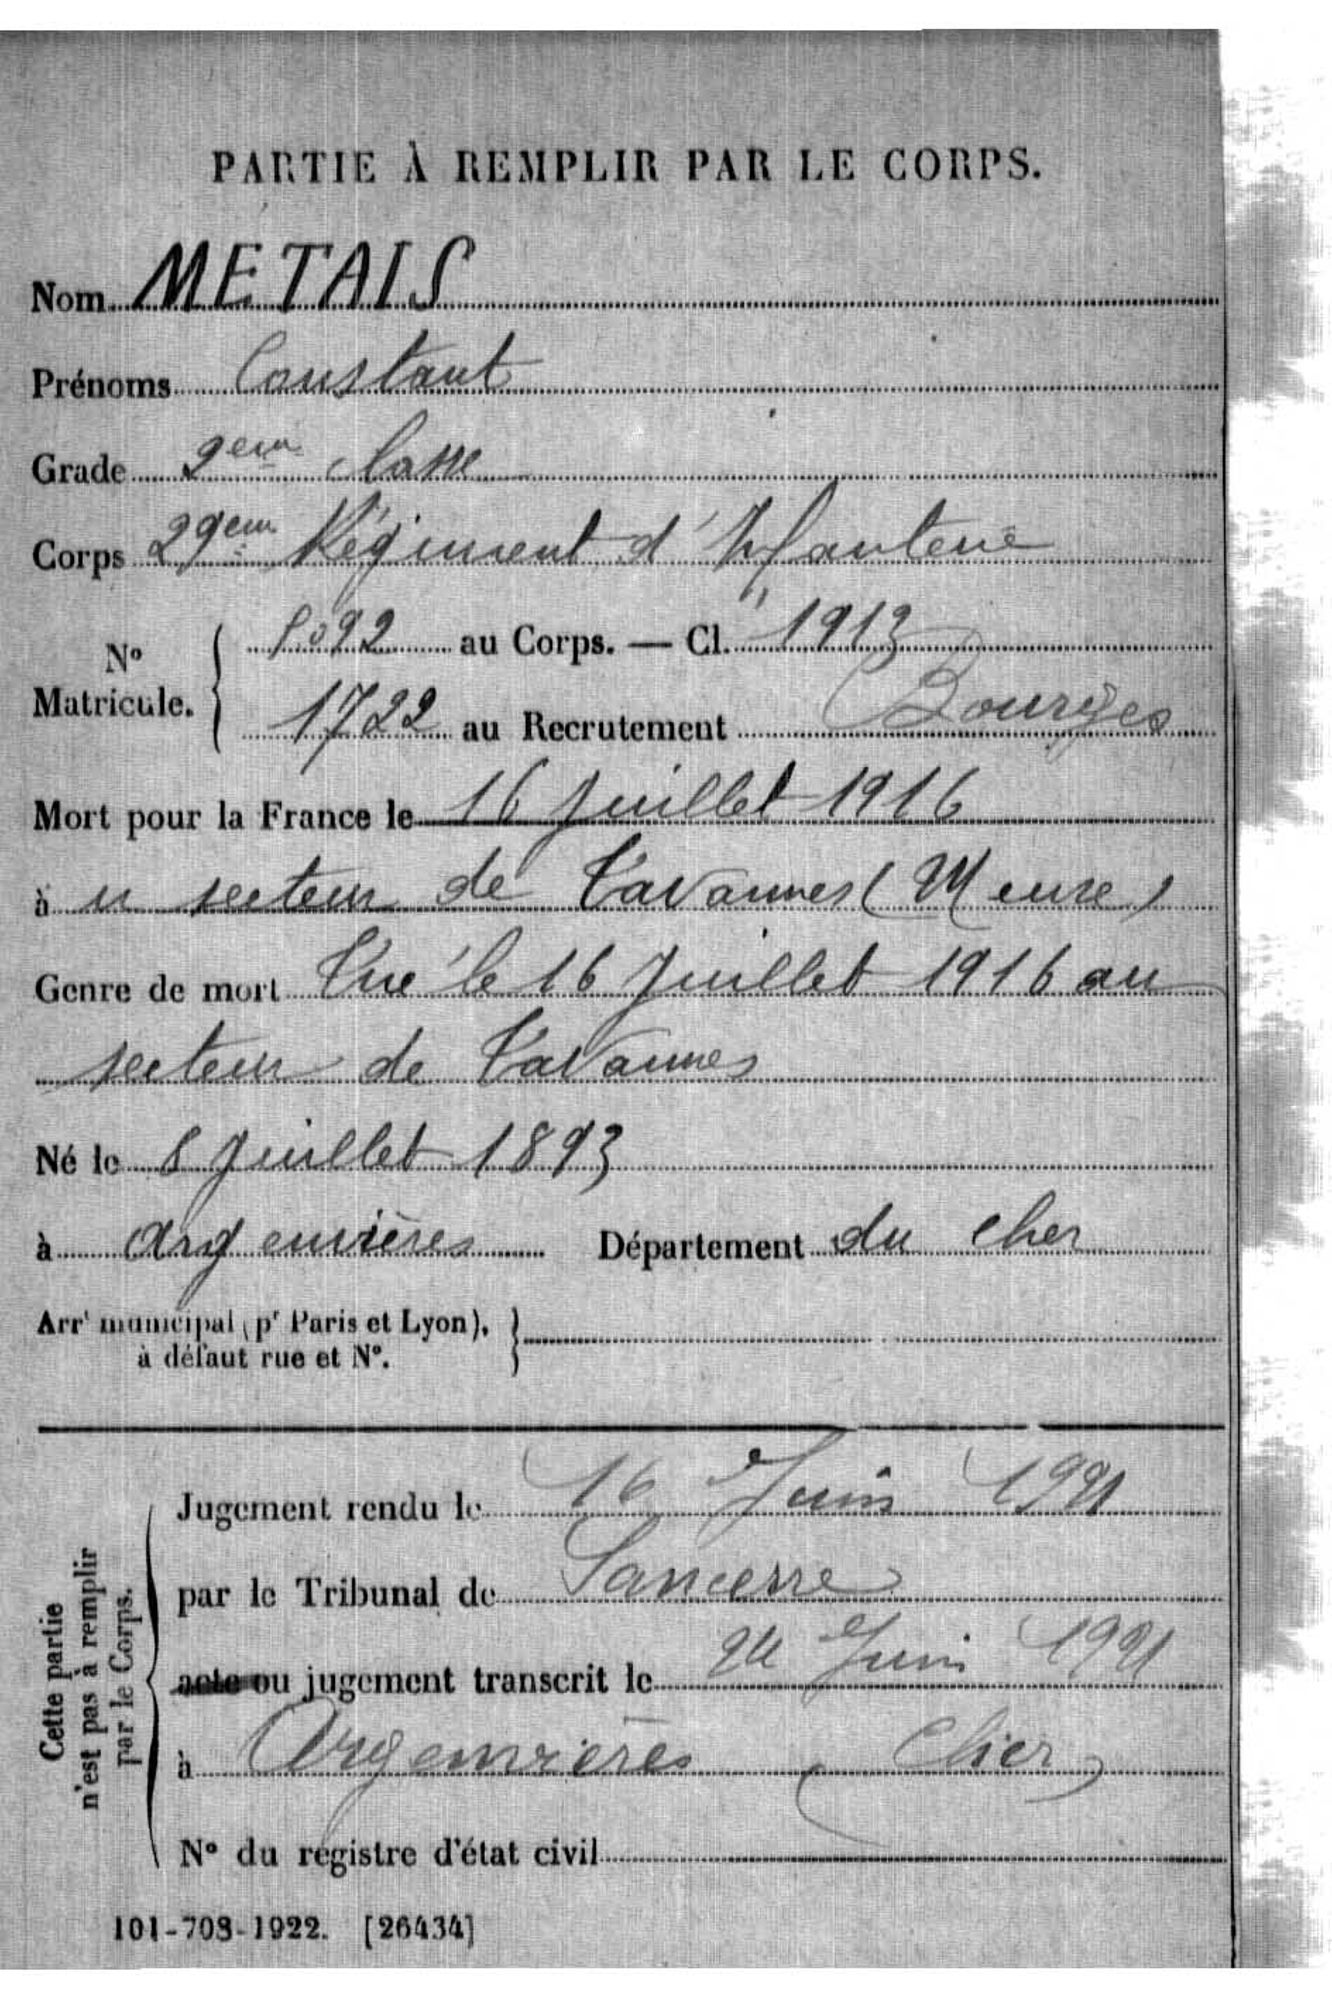 PARTIE À REMPLIR PAR LE CORPS.
Nom METAIS
Prénoms Constant
Grade 2em classe
Corps 29em Régiment d'Infanterie
N° Matricule. 8092 au Corps. — Cl. 1913
1722 au Recrutement Bourges
Mort pour la France le 16 Juillet 1916
à u secteur de Tavannes (Meuse)
Genre de mort Tué le 16 Juillet 1916 au
secteur de Tavannes
Né le 8 Juillet 1893
à Argenvières Département du Cher
Arrt municipal (pr Paris et Lyon),
à défaut rue et N°.
Cette partie
n'est pas à remplir
par le Corps.
Jugement rendu le 16 Juin 1921
par le Tribunal de Sancerre
acte ou jugement transcrit le 24 Juin 1921
à Argenvières (Cher)
N° du registre d'état civil
101-708-1922. [26434]